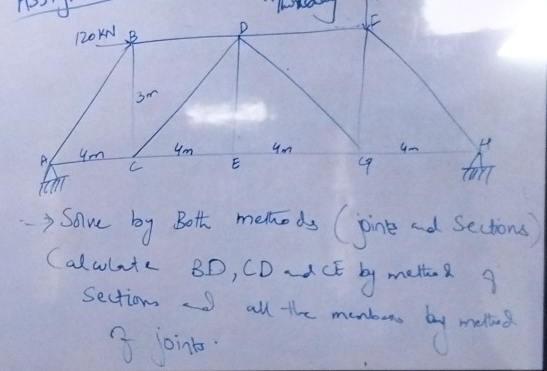 120KN B D F
3m
A 4m C 4m E 4m G 4m H
→ Solve by Both methods (joints and Sections)
Calculate BD, CD and CE by method of
Sections and all the members by method
of joints.